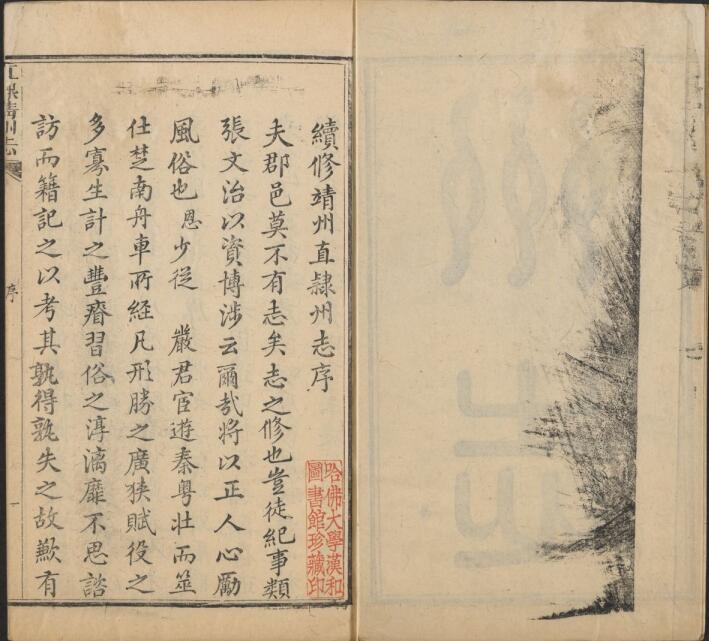 續修靖州直隸州志序
夫郡邑莫不有志矣志之修也豈徒紀事類
張文治以資博涉云爾哉將以正人心勵
風俗也恩少從 嚴君宦遊秦粵壯而筮
仕楚南舟車所經凡形勝之廣狹賦役之
多寡生計之豐瘠習俗之淳漓靡不思諮
訪而籍記之以考其孰得孰失之故歉有
序
一
哈佛大學漢和
圖書館珍藏印